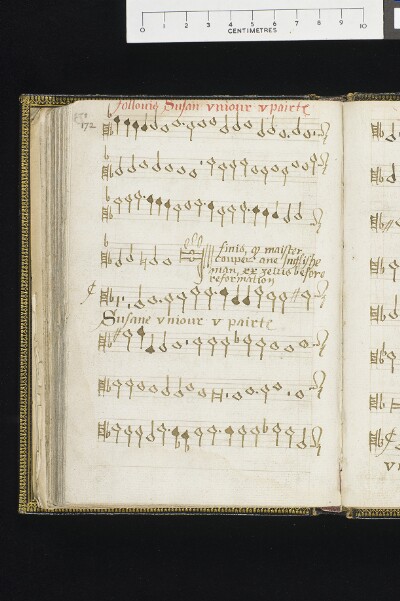 0 1 2 3 4 5 6 7 8 9 10
CENTIMETRES
followis Susan vniour v pairte
172
finis, q maister
couper ane Inglishe
man, xx zeiris before
reformation
Susane vniour v pairte